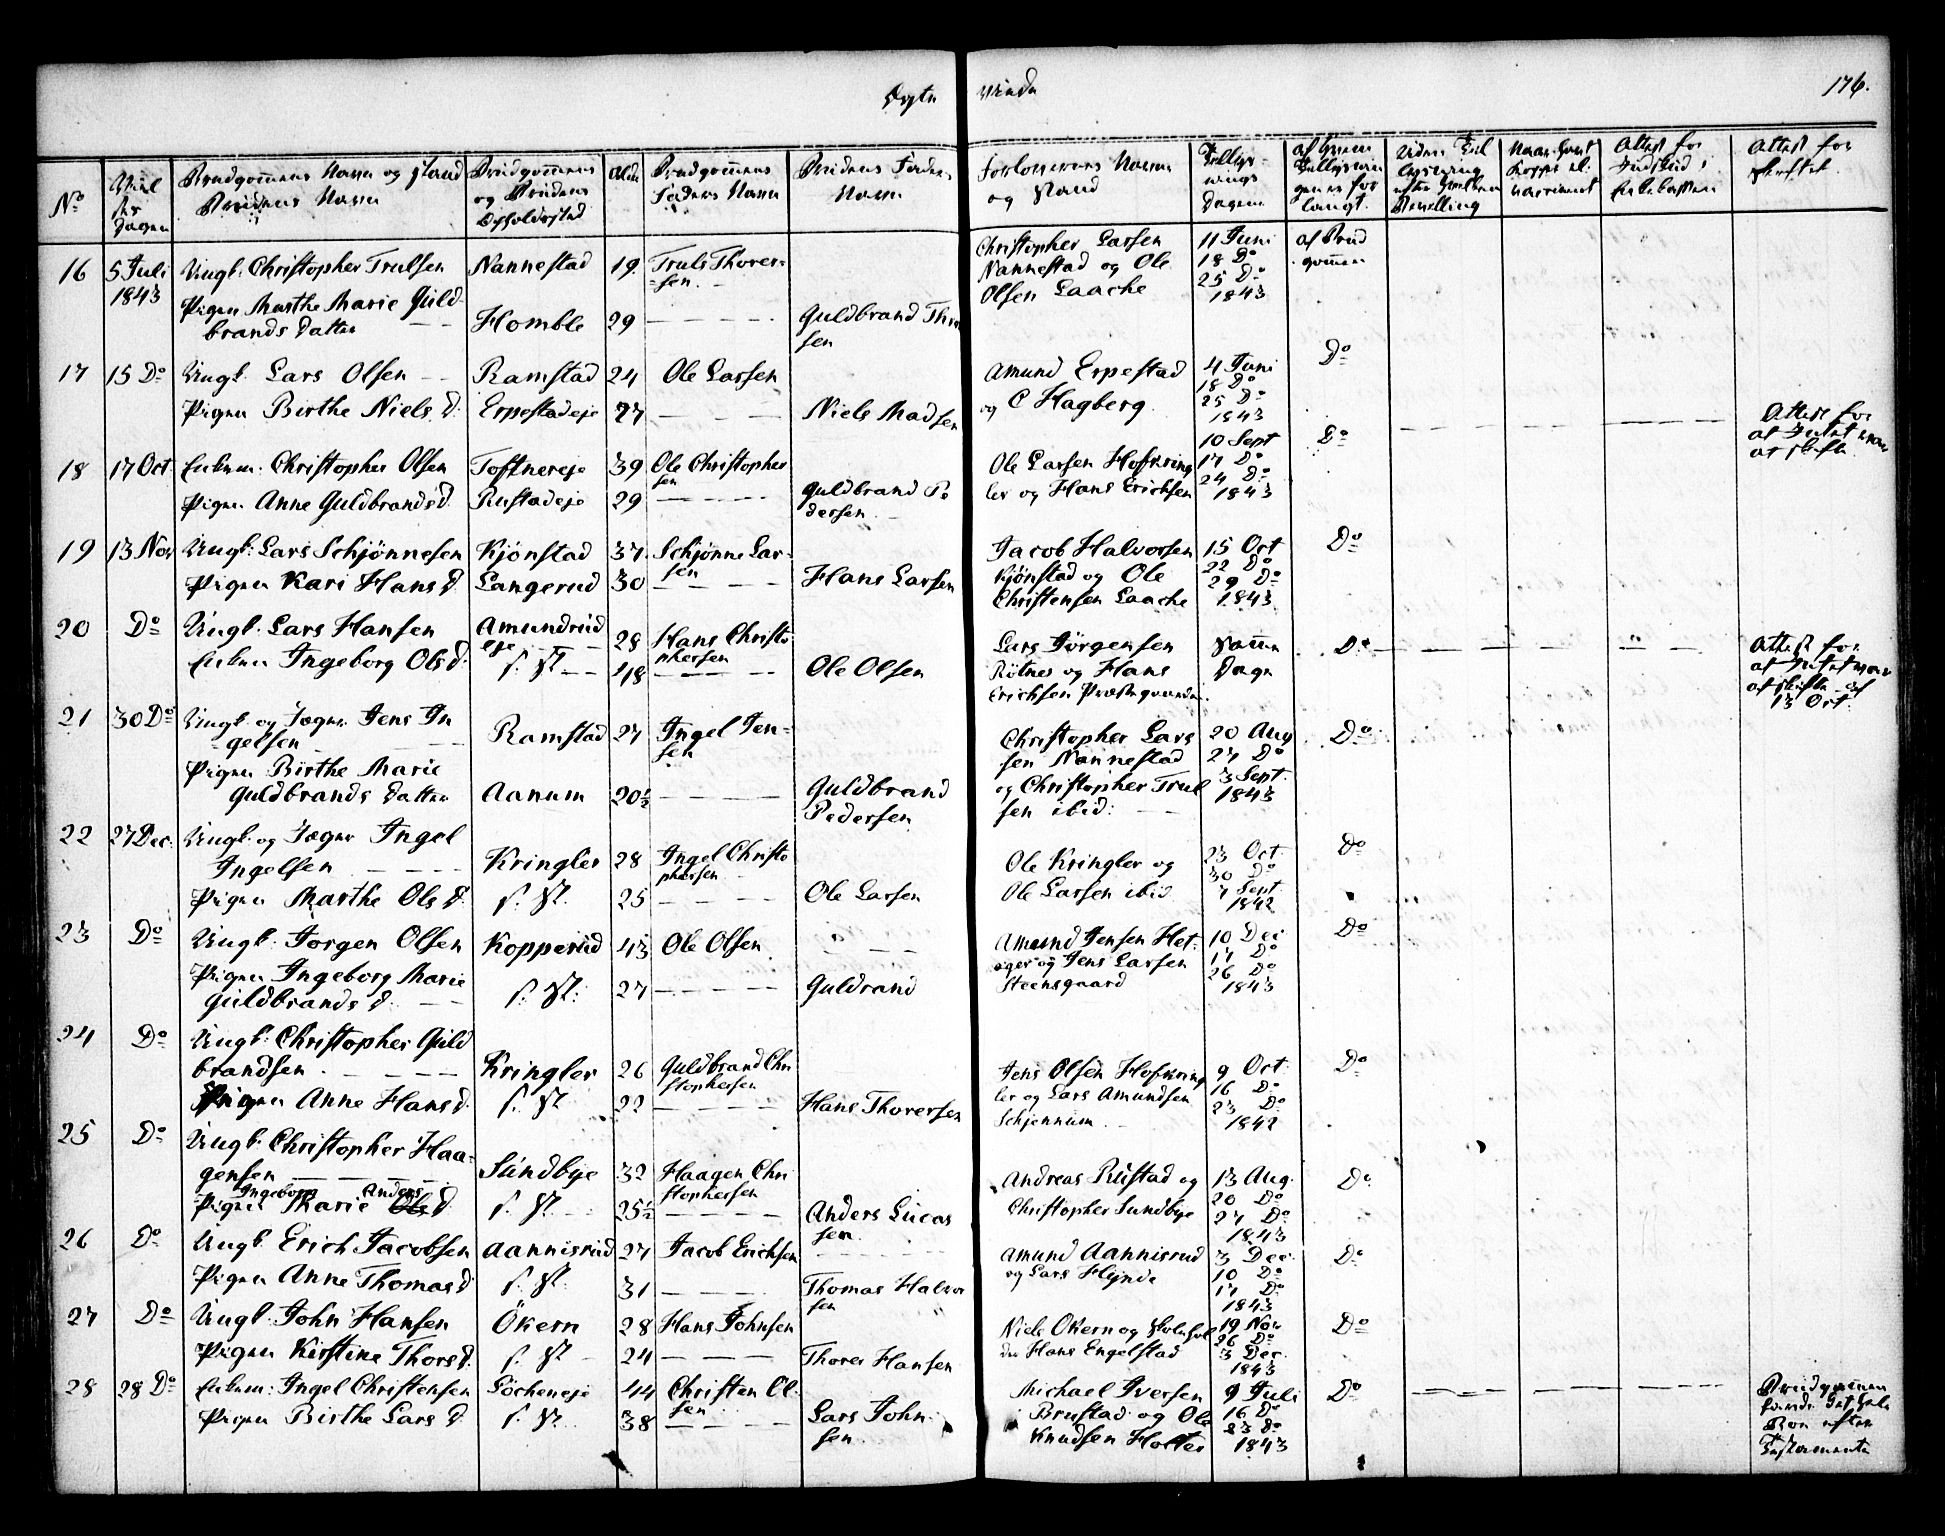 Ægte Viede 176.
No
Viel
ses
Dagen
Brudgommens Navn og Stand
Brudens Navn
Brudgommens
og Brudens
Opholdssted
Alder
Brudgommens
Faders Navn
Brudens Faders
Navn
Forloverens Navn
og Stand
Tillys-
nings
Dagene
af hvem
Tillysnin
gen er for
langt.
Uden Til
lysning
efter
Bevilling
Attest for
Indskud i
Enkekassen
Attest for
Skiftet.
16 5 Juli Ungk: Christopher Trulsen Nannestad 19 Truls Thorer=
=sen.
1843
Pigen Marthe Marie Guld-
brands Datter Homble 29 — — — Guldbrand Thor
sen
Christopher Larsen 11 Juni af Brud
Nannestad og Ole 18 Do gommen
Olsen Laache 25 Do
1843
17 15 Do Ungk. Lars Olsen Ramstad 24 Ole Larsen
Pigen Birthe Niels D. Erpestadeje 27 — — — Niels Madsen
Amund Erpestad 4 Juni Do
18 Do
og C Hagberg 25 Do
1843
18 17 Oct. Enkem: Christopher Olsen Toftnereje 39 Ole Christopher
sen
Pigen Anne Guldbrandsd. Rustadeje 29 — — — Guldbrand Pe
dersen
10 Sept Do
Ole Larsen Hofkring 17 Do
ler og Hans Erichsen 24 Do
1843
Attest for
at Intet var
at skifte
19 13 Nov Ungk: Lars Schjønnesen Kjönstad 37 Schjønne Lar-
sen
Pigen Kari Hans D. Langerud 30 — — — Hans Larsen
Jacob Halvorsen 15 Oct Do
22 Do
Kjönstad og Ole 29 Do
Christensen Laache 1843
20 Do Ungk. Lars Hansen Amundrud
eje 28 Hans Christo-
phersen
Enken Ingeborg Ols D. s. St. 48 — — — Ole Olsen
Lars Jörgensen samme Do
Rötnes og Hans Dage
Erichsen Præstegaarden.
Attest for
at Intet var
at skifte af
13 Oct.
21 30 Do Ungk. og Jæger Jens In
gelsen Ramstad 27 Ingel Jen=
sen
Pigen Birthe Marie
Guldbrands Datter Aanum 20½ — — — Guldbrand
Pedersen
Christopher Lars 20 Aug Do
sen Nannestad 27 Do
og Christopher Trul 3 Sept.
sen ibid: 1843
22 27 Dec. Ungk. og Jæger Ingel
Ingelsen Kringler 28 Ingel Christo
phersen
Pigen Marthe Ols D. s. St. 25 — — — Ole Larsen
Ole Kringler og 23 Oct. Do
30 Do
Ole Larsen ibid 7 Sept.
1842
23 Do Ungk. Jorgen Olsen Kopperud 43 Ole Olsen — —
Pigen Ingeborg Marie
Guldbrands D. s. St. 27 — — — Guldrand
Amund Jensen Het- 10 Dec Do
17 Do
ager og Jens Larsen 26 Do
Steensgaard 1843
24 Do Ungk. Christopher Guld
brandsen Kringler 26 Guldbrand Chri
stophersen
Pigen Anne Hans D. s. St 22 — — — Hans Thorersen
Jens Olsen Hofkring 9 Oct. Do
ler og Lars Amundsen 16 Do
23 Do
Schjennum 1842
25 Do Ungk. Christopher Haa=
gensen Sundbye 32 Haagen Chri
stophersen
Ingeborg Anders
Pigen Marie Ols D. s. St. 25½ — — — Anders Lucas
sen.
Andreas Rustad og 13 Aug. Do
20 Do
Christopher Sundbye 27 Do
1843
26 Do Ungk. Erich Jacobsen Aannisrud 27 Jacob Erichsen
Pigen Anne Thomas D. s. St. 31 — — — Thomas Halvor
sen
Amund Aannisrud 3 Dec. Do
og Lars Flynde 10 Do
17 Do
1843
27 Do Ungk. John Hansen Ökern 28 Hans Johnsen
Pigen Kirstine Thors D. s. St 24 — — — Thorer Hansen
Niels Okern og Skolehol 19 Nov Do
26 Do
der Hans Engelstad 3 Dec.
1843
28 28 Do Enkem: Ingel Christensen Löcheneje 44 Christen Ol-
sen
Pigen Birthe Lars D. s. St. 38 — — Lars John
sen.
Michael Iversen 9 Juli Do
Brustad og Ole 16 Do
23 Do
Knudsen Holter 1843
Brudgommen
det hele
Boe efter
Testamente